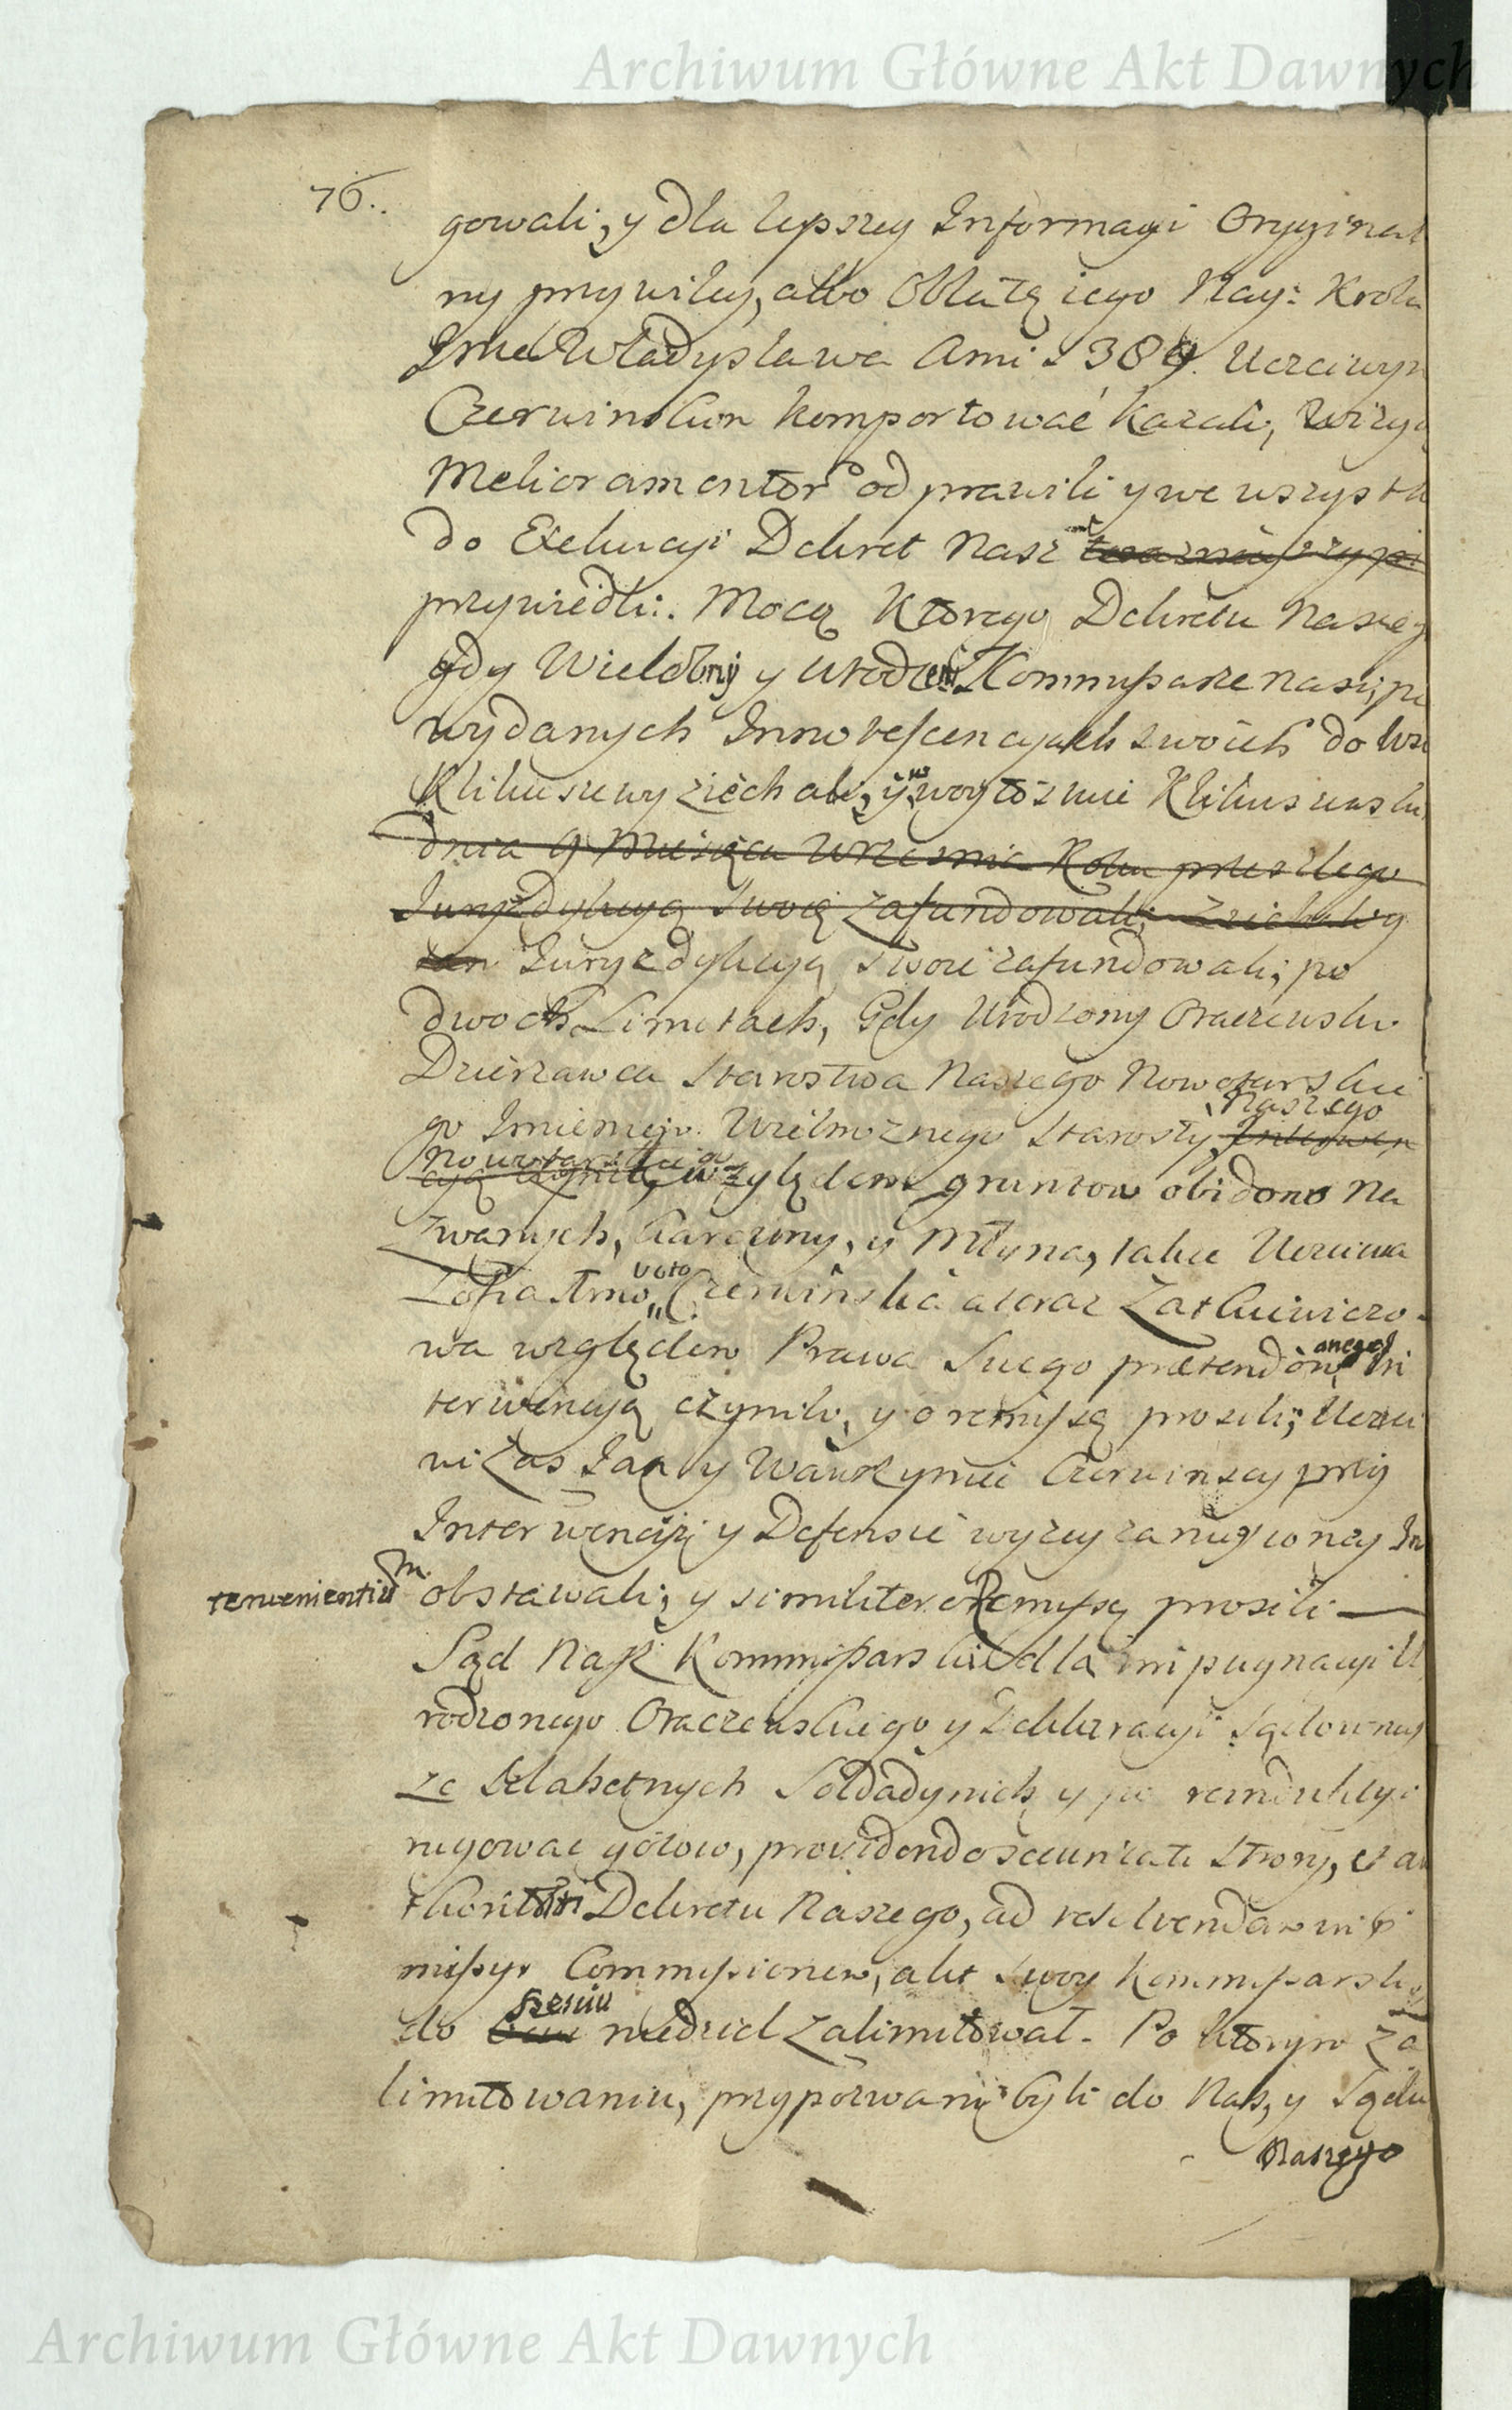 Archiwum Główne Akt Dawnych
76.
gowali, y dla lepszey Informacyi Oryginal
ny przywiley, albo Oblatę iego Nay: Krola
Jmci Władysława Anni 1389. Uczciwym
Czerwinskim komportować kazali, wizyą
Melioramentor̃ odprawili y we wszystk
do Exekucyi Dekret Nasz
przywiedli. Mocą Ktorego Dekretu Naszeg
gdy Wielebny y Urodzeni Kommissarze nasi, po
wydanych Innotescencyach swoich do Wsi
Klikuszowy ziechali, y w woytostwie Klikuszowsk
dnia 9 Miesiąca Wrzesnia Roku przeszłego
Juryzdykcyą Swoią zafundowali; ziechali y
Juryzdykcyą swoie zafundowali; po
dwoch Limitach, Gdy Urodzony Oraczewski
Dzierzawca Starostwa Naszego Nowotarskie
Naszego
go Imieniem Wielmoznego Starosty
Nowotarskiego
względem gruntow obidono Na
zwanych, Karczmy, y Młyna, takze Uczciwa
voto
Zofia 1mo Czerwińska a teraz Zatkiewiczo
wa względem Prawa Swego prætendowanego In
terwencyą czynili, y o remissę prosili; Uczci
wi zas Jan y Wawrzyniec Czerwinscy przy
Interwencyi y Defensie wyzey zaniesioney In
tervenientium obstawali; y similiter o Remissę prosili —
Sąd Nasz Kommissarski dla impugnacyi U
rodzonego Oraczewskiego y Deliberacyi Sądowney
ze Szlachetnych Soldadynich y po reindukcyi
rugować gotow, providendo securitati Strony, et au
thoritati Dekretu Naszego, ad resolvendam
Commissionem, akt swoy Kommissarski
sześciu
do niedziel zalimitował. Po ktorym za
limitowaniu, przypozwani byli do Nas, y Sądu
Naszego
Archiwum Główne Akt Dawnych